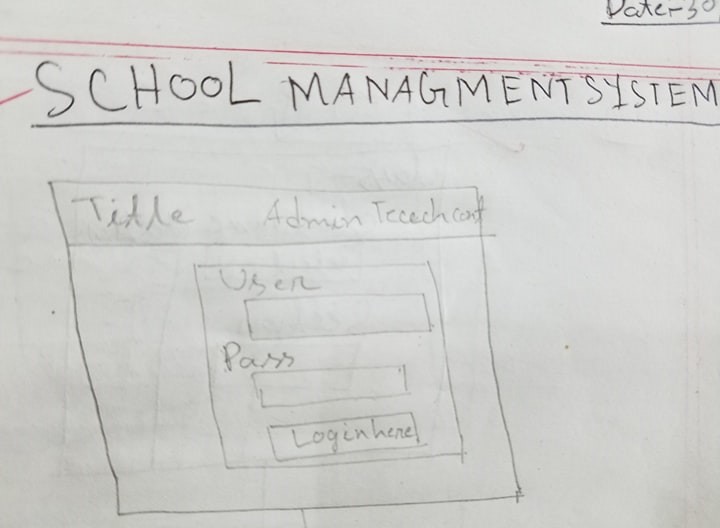 Date-30
SCHOOL MANAGMENT SYSTEM
Title Admin
User
Pass
Login here